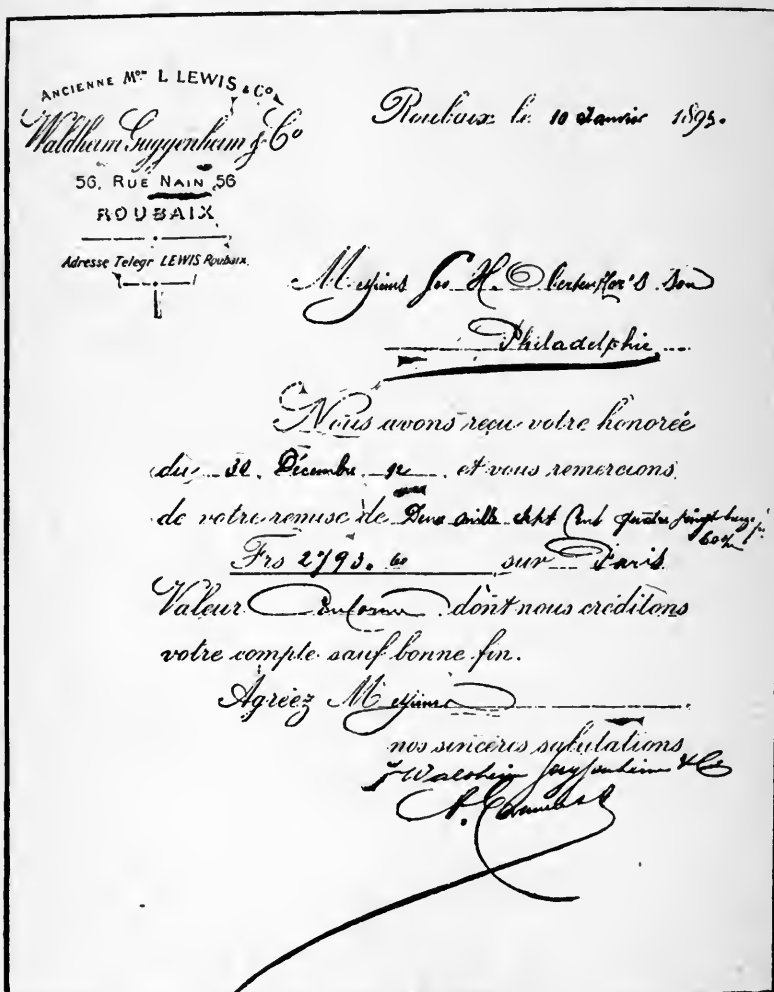 ANCIENNE Mon L LEWIS & Co
Waldheim Guggenheim & Co
56, RUE NAIN 56
ROUBAIX
Adresse Telegr LEWIS Roubaix.
Roubaix le 10 Janvier 1893.
Messieurs Geo H. Son
Philadelphie
Nous avons reçu votre honorée
du Décembre 92 et vous remercions
de votre remise de Deux mille Sept Cent quatre vingt treize fr
60%
Frs 2793. 60 sur Paris
Valeur dont nous créditons
votre compte sauf bonne fin.
Agréez Messieurs
nos sincères salutations
Waldheim Guggenheim & Co